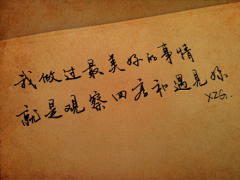 我做过最美好的事情
就是观察四吉和遇见你
XZG.